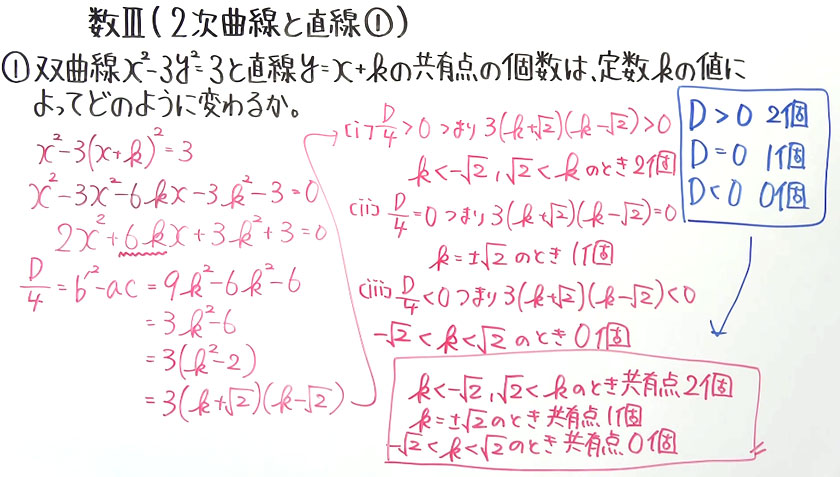 数Ⅲ(2次曲線と直線①)
①双曲線x²-3y²=3と直線y=x+kの共有点の個数は、定数kの値に
よってどのように変わるか。
x²-3(x+k)²=3
x²-3x²-6kx-3k²-3=0
2x²+6kx+3k²+3=0
D/4=b'²-ac=9k²-6k²-6
=3k²-6
=3(k²-2)
=3(k+√2)(k-√2)
(i) D/4>0つまり3(k+√2)(k-√2)>0
k<-√2,√2<kのとき2個
(ii) D/4=0つまり3(k+√2)(k-√2)=0
k=±√2のとき1個
(iii) D/4<0つまり3(k+√2)(k-√2)<0
-√2<k<√2のとき0個
D>0 2個
D=0 1個
D<0 0個
k<-√2,√2<kのとき共有点2個
k=±√2のとき共有点1個
-√2<k<√2のとき共有点0個